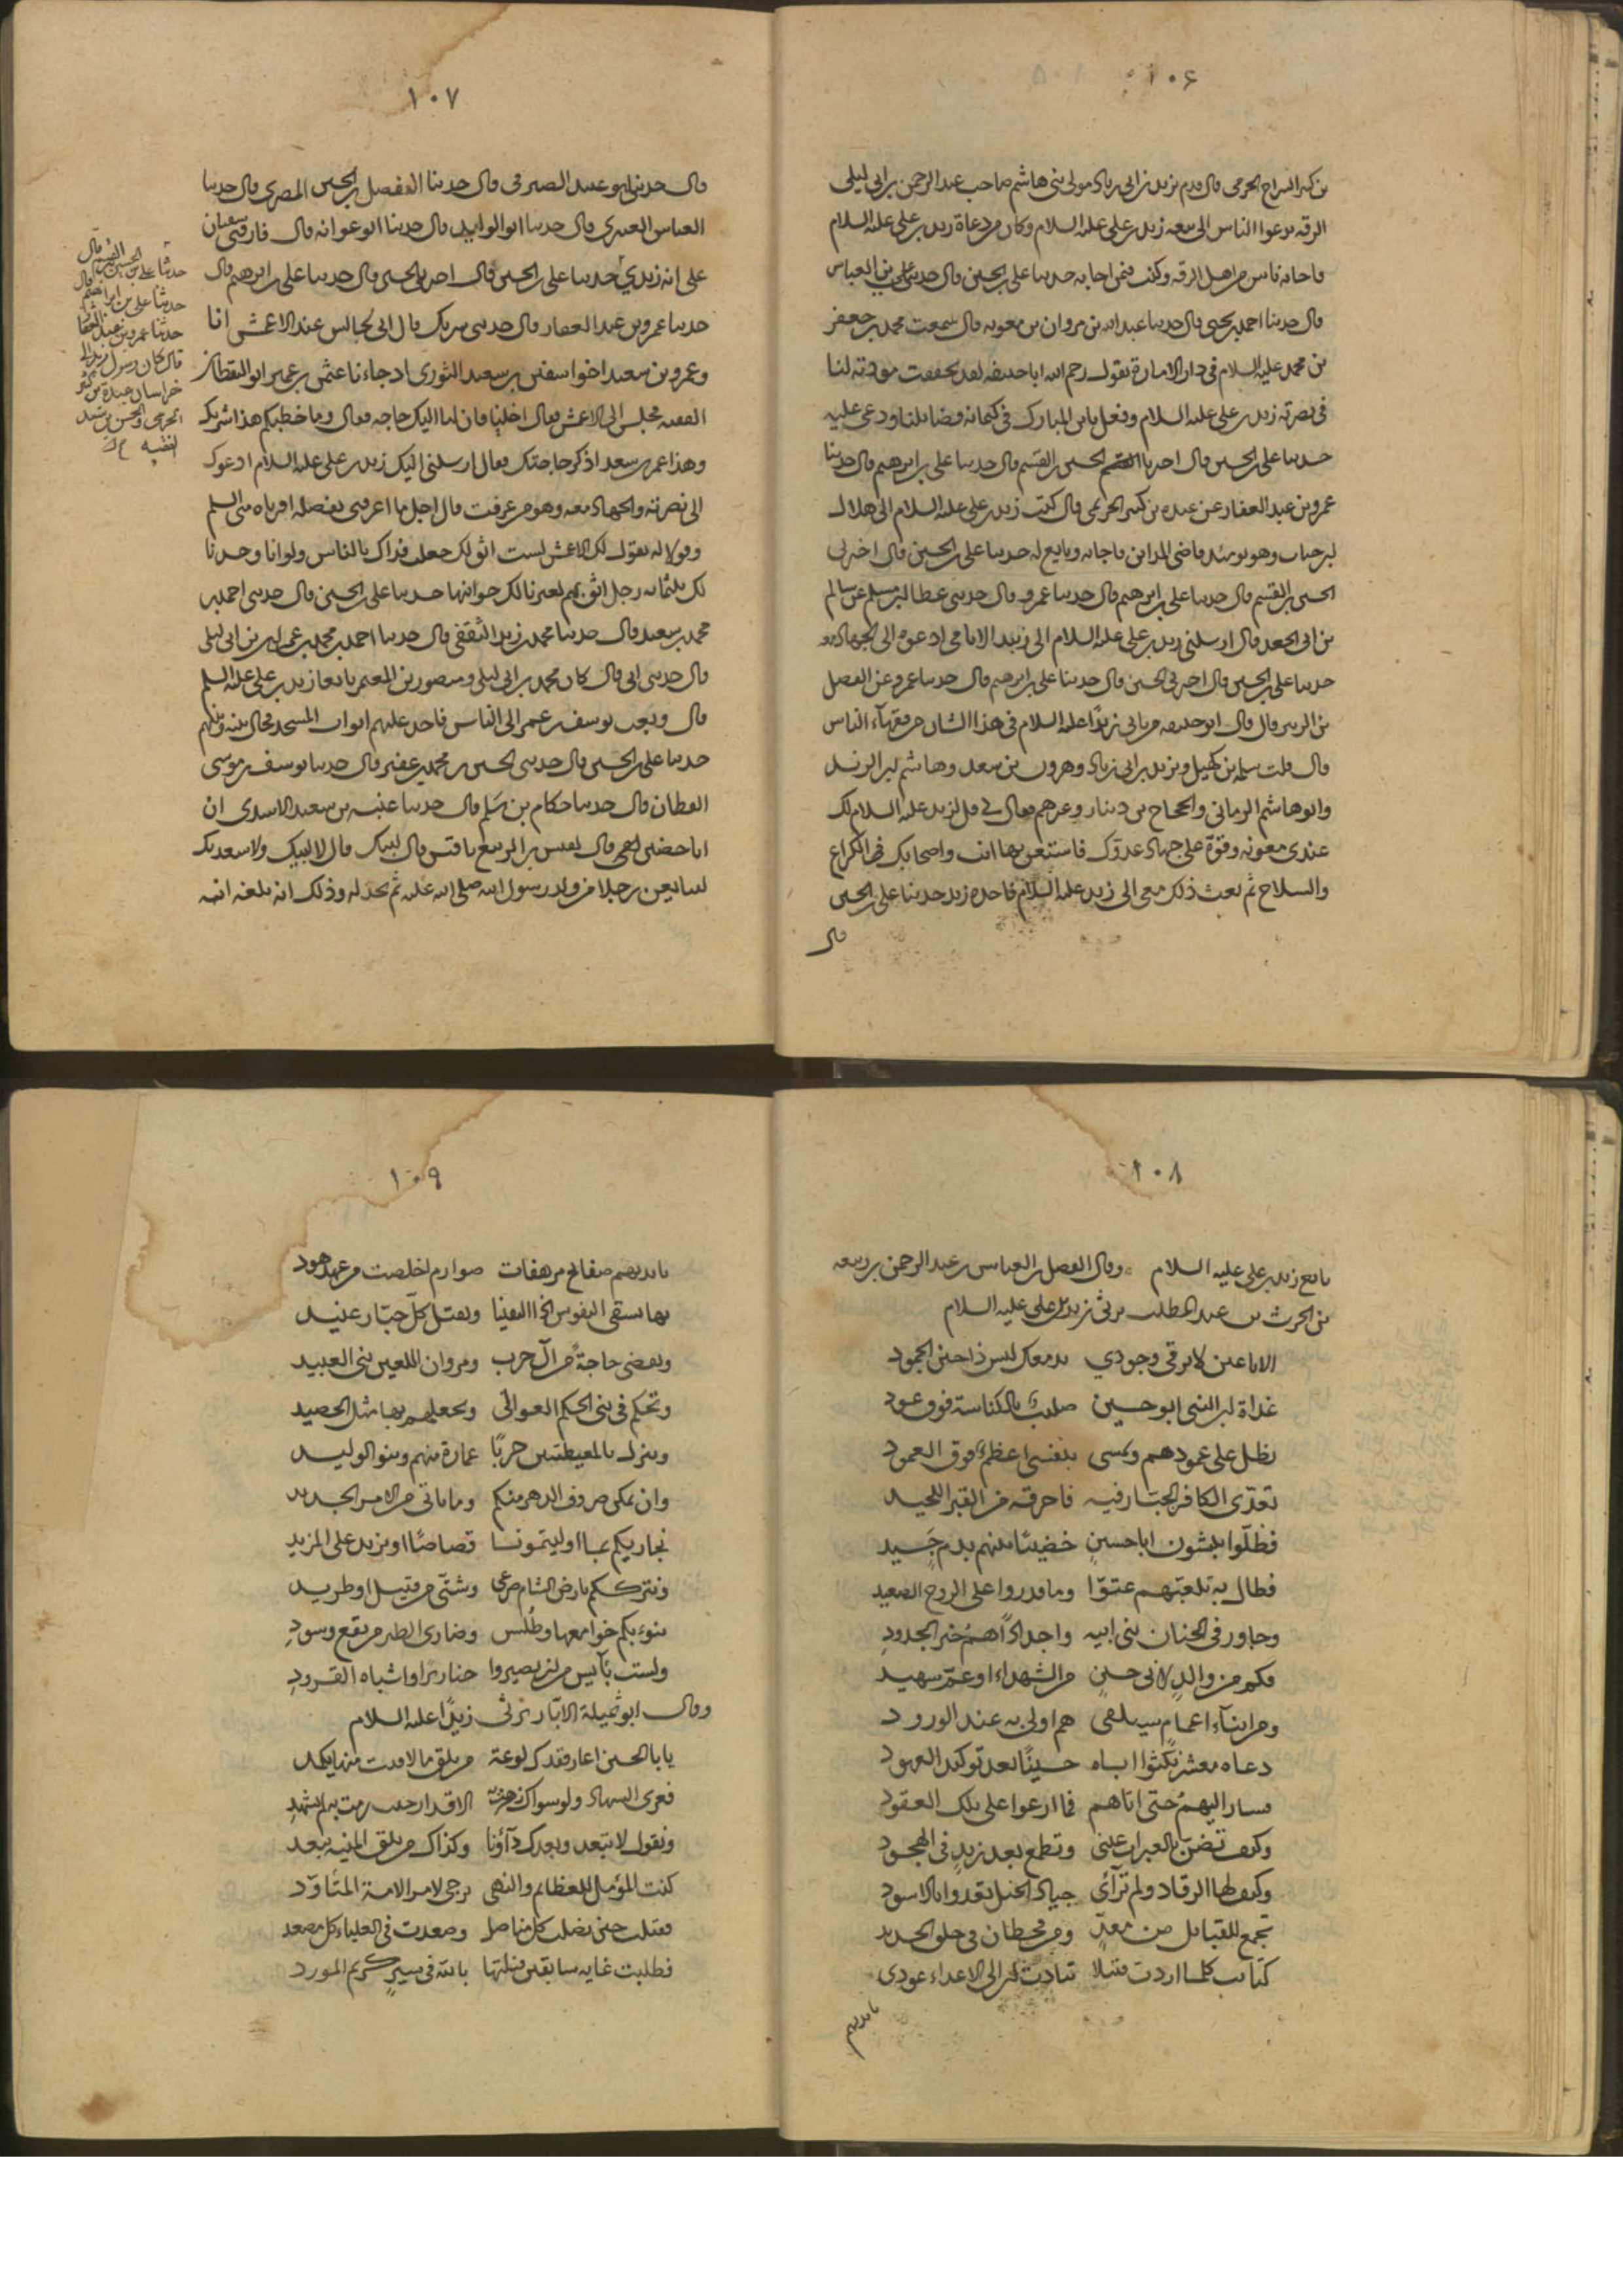 ١٠۶
بن كثير السراج الجرمي قال قدم يزيد بن ابي زياد مولى بني هاشم صاحب عبد الرحمن بن ابي ليلى
الرقه يدعوا الناس الى بيعه زيد بن علي عليه السلام وكان من دعاة زيد بن علي عليه السلام
فاجابه ناس من اهل الرقه وكنت فيمن اجابه حدثنا علي بن الحسين قال حدثنا علي بن العباس
قال حدثنا احمد بن يحيى قال حدثنا عبد الله بن مروان بن معويه قال سمعت محمد بن جعفر
بن محمد عليه السلام في دار الامارة يقول رحم الله ابا حنيفه لقد تحققت مودته لنا
في نصرته زيد بن علي عليه السلام وفعل بابن المبارك في كتمانه فضائلنا ودعى عليه
حدثنا علي بن الحسين قال اخبرنا الحسين بن القسم قال حدثنا علي بن ابرهيم قال حدثنا
عمرو بن عبد الغفار عن عبده بن كثير الجرمي قال كتب زيد بن علي عليه السلام الى هلال
بن حباب وهو يومئذ قاضي المداين فاجابه وبايع له حدثنا علي بن الحسين قال اخبرني
الحسين بن القسم قال حدثنا علي بن ابرهيم قال حدثنا عمرو قال حدثني عطا بن مسلم عن سالم
بن ابي الجعد قال ارسلني زيد بن علي عليه السلام الى زبيد الايامي ادعوه الى الجهاد معه
حدثنا علي بن الحسين قال اخبرني الحسين قال حدثنا علي بن ابرهيم قال حدثنا عمرو عن الفضل
بن الزبير قال قال ابو حنيفه من ياتي زيدًا عليه السلام في هذا الشان من فقهاء الناس
قال قلت سلمه بن كهيل ويزيد بن ابي زياد وهرون بن سعد وهاشم بن البريد
وابو هاشم الرماني والحجاج بن دينار وغيرهم فقال لي قل لزيد عليه السلام لك
عندي معونه وقوة على جهاد عدوّك فاستعن بها انت واصحابك في الكراع
والسلاح ثم بعث ذلك معي الى زيد عليه السلام فاخذه زيد حدثنا علي بن الحسين
قال
١٠٧
قال حدثنا ابو عبيد الصيرفي قال حدثنا الفضل بن الحسن المصري قال حدثنا
العباس العنبري قال حدثنا ابو الوليد قال حدثنا ابو عوانه قال فارقني سفيان
على انه زيدي حدثنا علي بن الحسين قال اخبرني الحسين قال حدثنا علي بن ابرهيم قال
حدثنا عمرو بن عبد الغفار قال حدثني شريك قال اني لجالس عند الاعمش انا
وعمرو بن سعيد اخو سفين بن سعيد الثوري اذ جاءنا عثمن بن عمير ابو اليقظان
الفقيه فجلس الى الاعمش فقال اخلنا فان لنا اليك حاجه فقال وما خطبكم هذا شريك
وهذا عمر بن سعد اذكر حاجتك فقال ارسلني اليك زيد بن علي عليه السلام ادعوك
الى نصرته والجهاد معه وهو من عرفت قال اجل ما اعرفني بفضله اقرياه مني السلم
وقولا له يقول لك الاعمش لست اثق لك جعلت فداك بالناس ولو انا وجدنا
لك ثلثمائه رجل اثق بهم لغيرنا لك جوانبها حدثنا علي بن الحسين قال حدثني احمد بن
محمد بن سعيد قال حدثنا محمد بن زيد الثقفي قال حدثنا احمد بن محمد بن عمران بن ابي ليلى
قال حدثني ابي قال كان محمد بن ابي ليلى ومنصور بن المعتمر بايعا زيد بن علي عليه السلم
قال وبعث يوسف بن عمر الى الناس فاخذ عليهم ابواب المسجد فحال بينه وبينهم
حدثنا علي بن الحسين قال حدثني الحسين بن محمد بن عفير قال حدثنا يوسف بن موسى
القطان قال حدثنا حكام بن سلم قال حدثنا عنبسه بن سعيد الاسدي ان
ابا حصين قال لقيس بن الربيع يا قيس قال لبيك قال لا لبيك ولا سعديك
لتبايعن رجلا من ولد رسول الله صلى الله عليه ثم تخذله وذلك انه بلغه انه
قال
حدثنا علي بن الحسين بن القسم قال
حدثنا علي بن ابراهيم قال
حدثنا عمرو بن عبد الغفار
قال كان رسول زيد الى
خراسان عبدة بن كثير
الجرمي والحسن بن سعد
الفقيه
١٠٨
بايع زيد بن علي عليه السلام وقال الفضل بن العباس بن عبد الرحمن بن ربيعه
بن الحرث بن عبد المطلب يرثي زيد بن علي عليه السلام
الا يا عين لا ترقي وجودي بدمعك ليس ذا حين الجمود
غداة ابن النبي ابو حسين صليب بالكناسة فوق عود
يظل على عمودهم ويمسى بنفسي اعظم فوق العمود
تعدّى الكافر الجبّار فيه فاحرقه من القبر اللحيد
فظلّوا ينبشون ابا حسين خضيبًا بينهم بدم جسيد
فطال به تلعبهم عتوّا وما قدروا على الروح الصعيد
وجاور في الجنان بني ابيه واجدادًا هم خير الجدود
فكم من والد لابي حسين من الشهداء او عم شهيد
ومن ابناء اعمام سيلقى هم اولى به عند الورود
دعاه معشر نكثوا اباه حسينًا بعد توكيد العهود
فسار اليهم حتى اتاهم فما ارعوا على تلك العقود
وكيف تضن بالعبرات عيني وتطمع بعد زيد في الهجود
وكيف لها الرقاد ولم تراءى جياد الخيل تعدوا بالاسود
تجمع للقبائل من معدّ ومن قحطان في حلق الحديد
كتائب كلما اردت قتيلا تنادت ان الى الاعداء عودي
بايديهم
١٠٩
بايديهم صفائح مرهفات صوارم اخلصت من عهد هود
بها نسقي النفوس اذا التقينا ونقتل كلّ جبّار عنيد
ونقضي حاجة من آل حرب ومروان اللعين بني العبيد
ونحكم في بني الحكم العوالي ونجعلهم بها مثل الحصيد
وننزل بالمعيطيين حربًا عمارة منهم وبنو الوليد
وان تمكن صروف الدهر منكم وما ياتي من الامر الجديد
نجازيكم بما اوليتمونا قصاصًا او نزيد على المزيد
ونترككم بارض الشام صرعى وشتّى من قتيل او طريد
تنوء بكم خوامعها وطلس وضاري الطير من بقع وسود
ولست بآيس من ان يصيروا خنازيرا واشباه القرود
وقال ابو ثميلة الابّار يرثى زيدًا عليه السلام
يا با الحسين اعار فقدك لوعة من يلق ما لاقيت منها يكمد
فعرى السهاد ولو سواك الاقدار حيث رمت به لم يشهد
ونقول لا تبعد وبعدك دآؤنا وكذاك من يلق المنيه يبعد
كنت المؤمل للعظائم والنهى ترجى لامر الامة المتأوّد
فقتلت حين نضلت كل مناضل وصعدت في العلياء كل مصعد
فطلبت غايه سابقين فنلتها بالله في سير كريم المورد